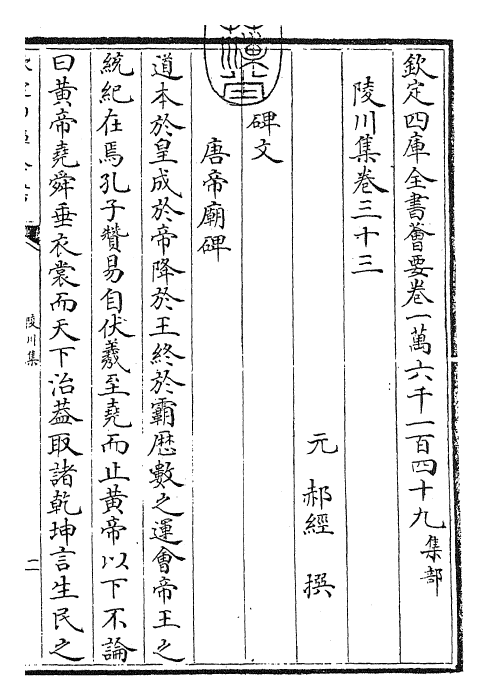 欽定四庫全書薈要卷一萬六千一百四十九 集部
陵川集卷三十三
元 郝經 撰
碑文
唐帝廟碑
道本於皇成於帝降於王終於霸厯數之運會帝王之
統紀在焉孔子贊易自伏羲至堯而止黄帝以下不論
曰黄帝堯舜垂衣裳而天下治葢取諸乾坤言生民之
陵川集
二